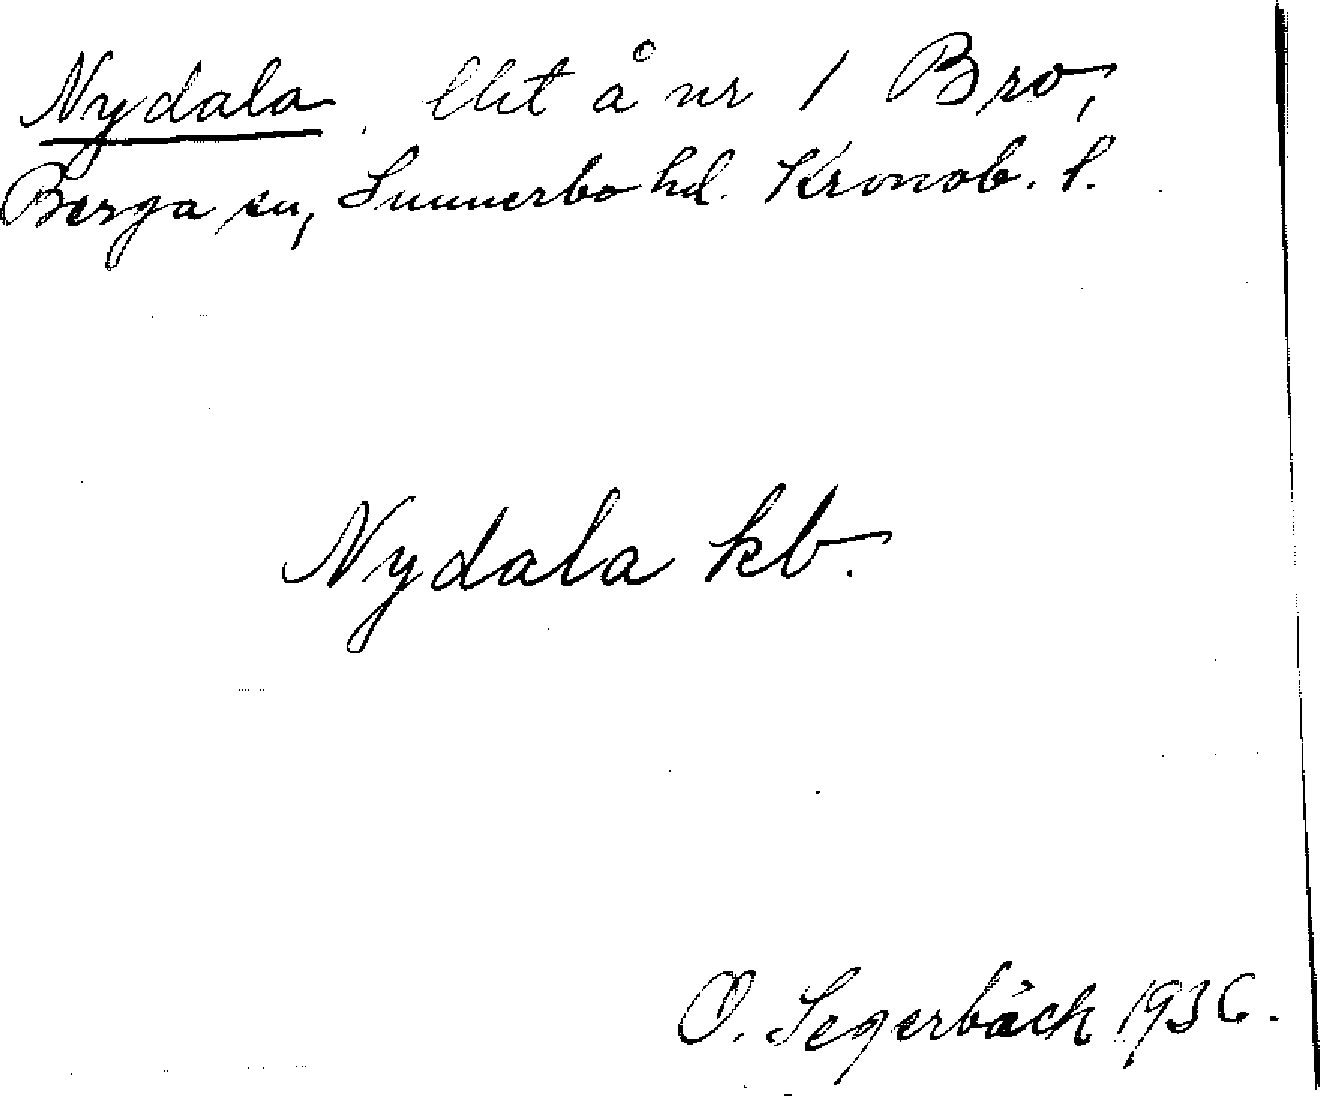 Nydala. Utet å nr 1 Bro,
Berga sn, Sunnerbo hd. Kronob. l.
Nydala kb.
O. Segerbäck 1936.